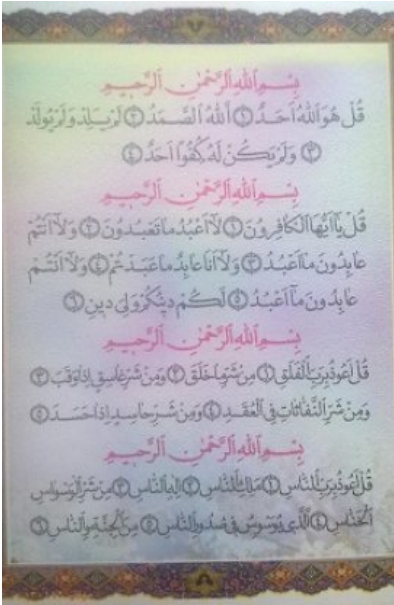 ٧
بِسْمِ اللهِ الرَّحْمٰنِ الرَّحِيمِ
قُلْ هُوَ اللهُ اَحَدٌ ﴿١﴾ اَللهُ الصَّمَدُ ﴿٢﴾ لَمْ يَلِدْ وَلَمْ يُولَدْ
﴿٣﴾ وَلَمْ يَكُنْ لَهُ كُفُوًا اَحَدٌ ﴿٤﴾
بِسْمِ اللهِ الرَّحْمٰنِ الرَّحِيمِ
قُلْ يَا اَيُّهَا الْكَافِرُونَ ﴿١﴾ لَا اَعْبُدُ مَا تَعْبُدُونَ ﴿٢﴾ وَلَا اَنْتُمْ
عَابِدُونَ مَا اَعْبُدُ ﴿٣﴾ وَلَا اَنَا عَابِدٌ مَا عَبَدْتُمْ ﴿٤﴾ وَلَا اَنْتُمْ
عَابِدُونَ مَا اَعْبُدُ ﴿٥﴾ لَكُمْ دِينُكُمْ وَلِىَ دِينِ ﴿٦﴾
بِسْمِ اللهِ الرَّحْمٰنِ الرَّحِيمِ
قُلْ اَعُوذُ بِرَبِّ الْفَلَقِ ﴿١﴾ مِنْ شَرِّ مَا خَلَقَ ﴿٢﴾ وَمِنْ شَرِّ غَاسِقٍ اِذَا وَقَبَ ﴿٣﴾
وَمِنْ شَرِّ النَّفَّاثَاتِ فِى الْعُقَدِ ﴿٤﴾ وَمِنْ شَرِّ حَاسِدٍ اِذَا حَسَدَ ﴿٥﴾
بِسْمِ اللهِ الرَّحْمٰنِ الرَّحِيمِ
قُلْ اَعُوذُ بِرَبِّ النَّاسِ ﴿١﴾ مَلِكِ النَّاسِ ﴿٢﴾ اِلٰهِ النَّاسِ ﴿٣﴾ مِنْ شَرِّ الْوَسْوَاسِ
الْخَنَّاسِ ﴿٤﴾ اَلَّذِى يُوَسْوِسُ فِى صُدُورِ النَّاسِ ﴿٥﴾ مِنَ الْجِنَّةِ وَالنَّاسِ ﴿٦﴾
٨